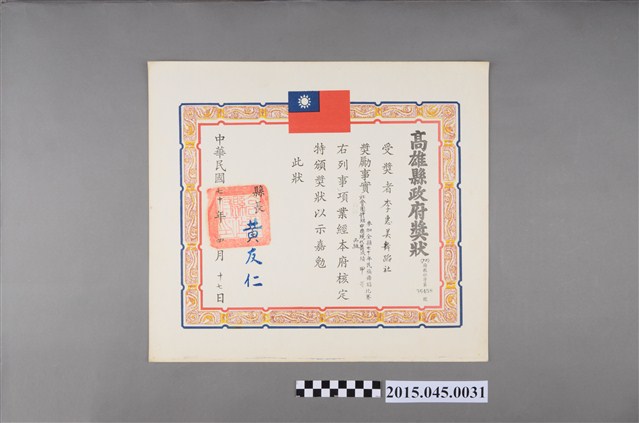 高雄縣政府獎狀
受獎者 李彩娥舞蹈社
獎勵事實
參加全縣七十年民族舞蹈比賽
右列事項業經本府核定
特頒獎狀以示嘉勉
此狀
縣長 黃友仁
中華民國七十年 月十七日
2015.045.0031